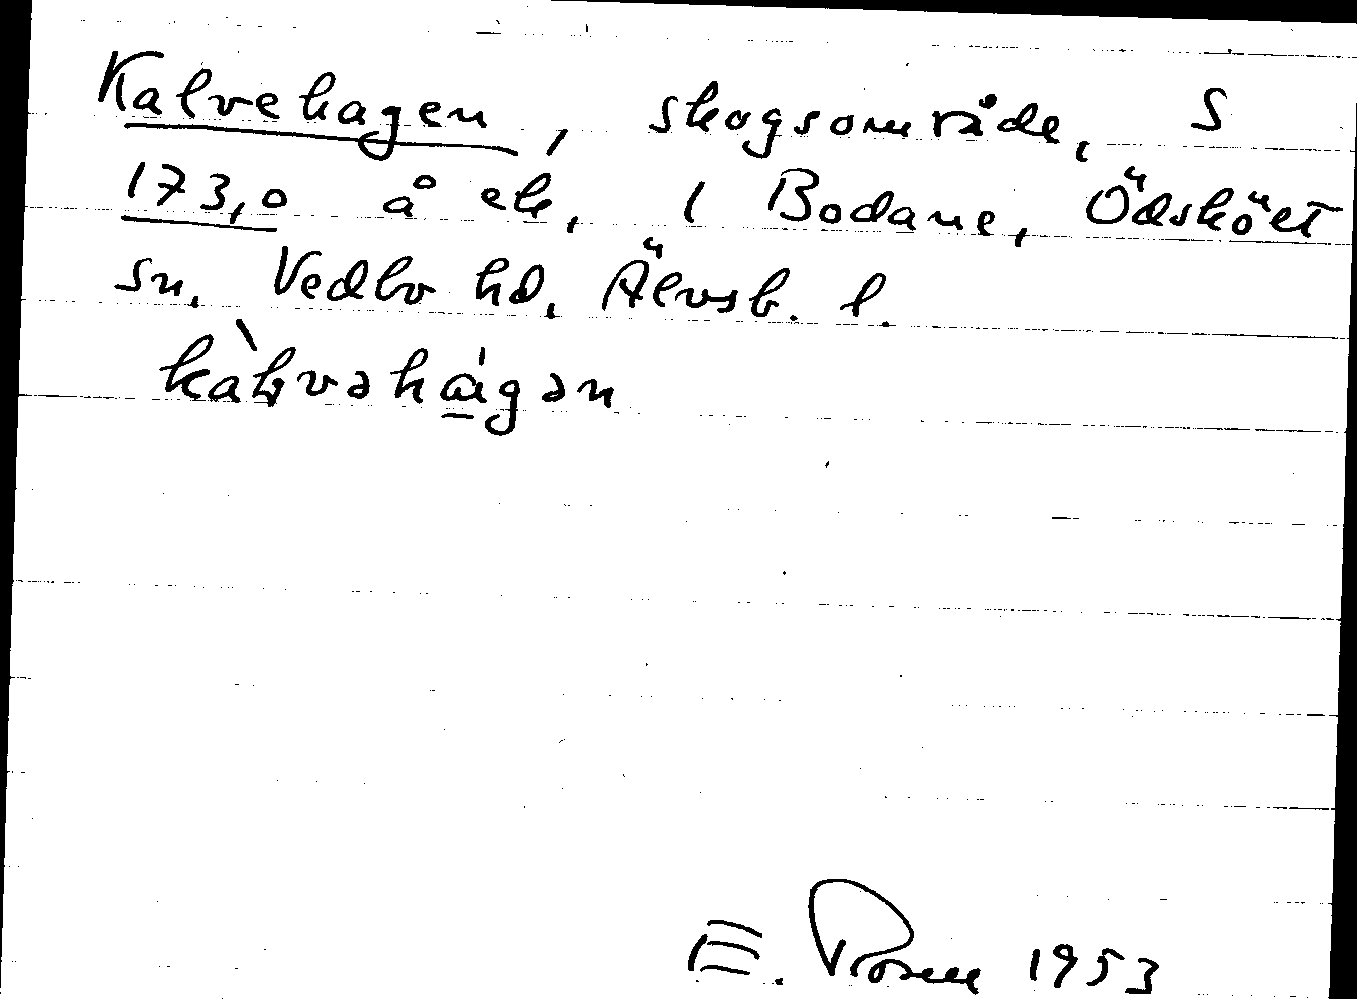 Kalvehagen, skogsområde, S
173,0 å ek, i Bodane, Ödsköet
sn. Vedbo hd, Älvsb. l.
E. Rosell 1953